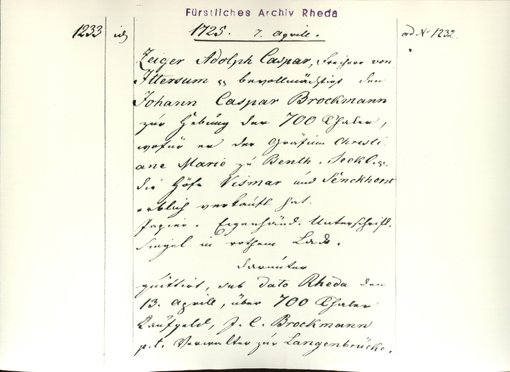 Fürstliches Archiv Rheda
1233
1725. 7. Aprill.
ad No 1232.
Zeiger Adolph Caspar, Freiherr von
Ittersum bevollmächtigt den
Johann Caspar Brockmann
zur Hebung der 700 Thaler,
wofür er der Gräfinn Christi
ane Marie zu Benth. Teckl.
die Höfe Vismar und Senckhorst
erblich verkauft hat.
Papier. Eigenhänd. Unterschrift.
Siegel in rothem Lack.
Darunter
quittirt, sub dato Rheda den
13. Aprill, über 700 Thaler
Kaufgeld, J. C. Brockmann
p. t. Verwalter zur Langenbrücke.